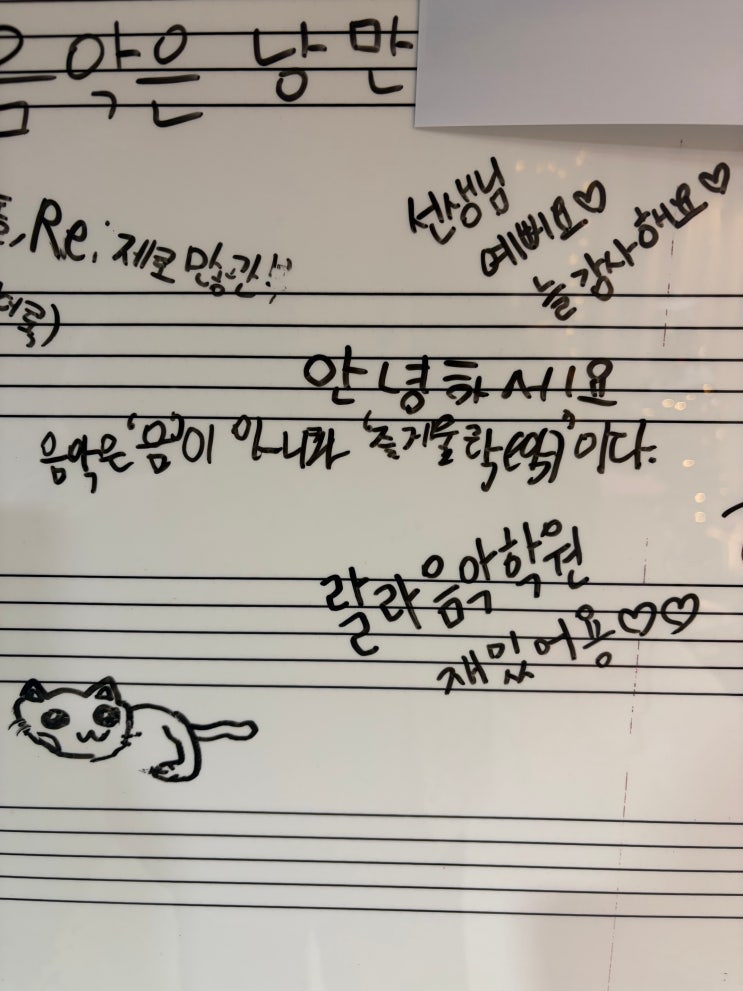 음악은 낭만
선생님
예뻐요♡
늘 감사해요♡
Re: 제로
안녕하세요
음악은 '음'이 아니라 '즐거울 락(악)'이다.
랄라음악학원
재밌어용♡♡